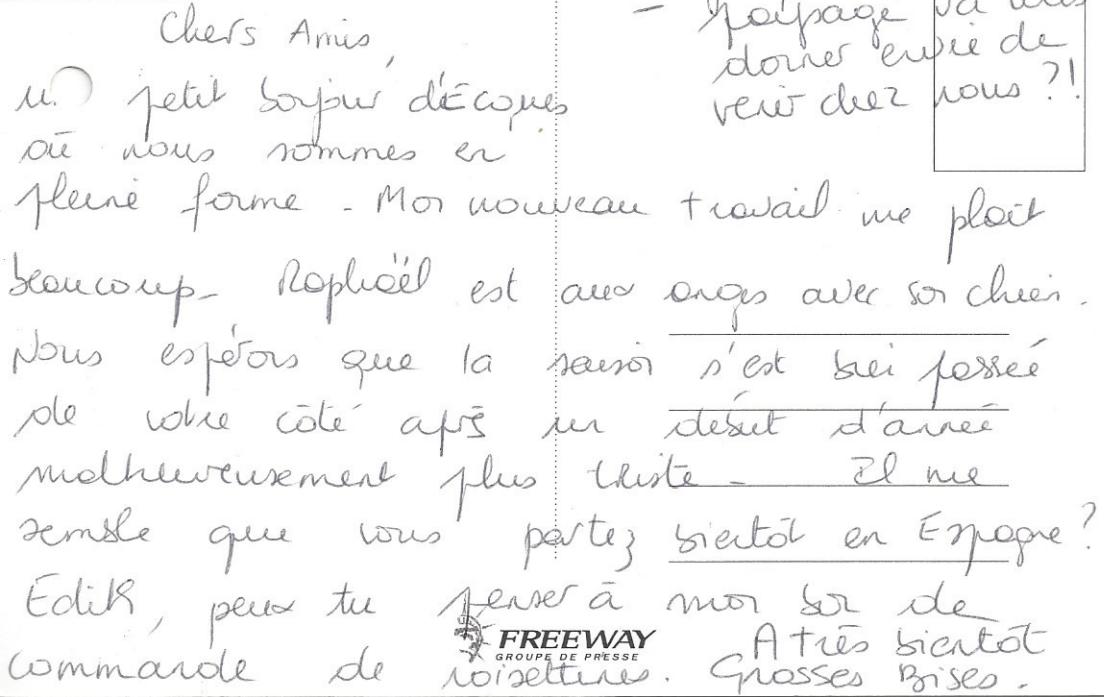 Chers Amis,
un petit bonjour d'Ecques
où nous sommes en
pleine forme - Mon nouveau travail me plaît
beaucoup - Raphaël est aux anges avec son chien.
Nous espérons que la saison s'est bien passée
de votre côté après un début d'année
malheureusement plus triste - Il me
semble que vous partez bientôt en Espagne ?
Edith, peux tu penser à mon bon de
commande de noisettines.
A très bientôt
Grosses Bises.
- paysage va vous
donner envie de
venir chez nous ?!
FREEWAY
GROUPE DE PRESSE